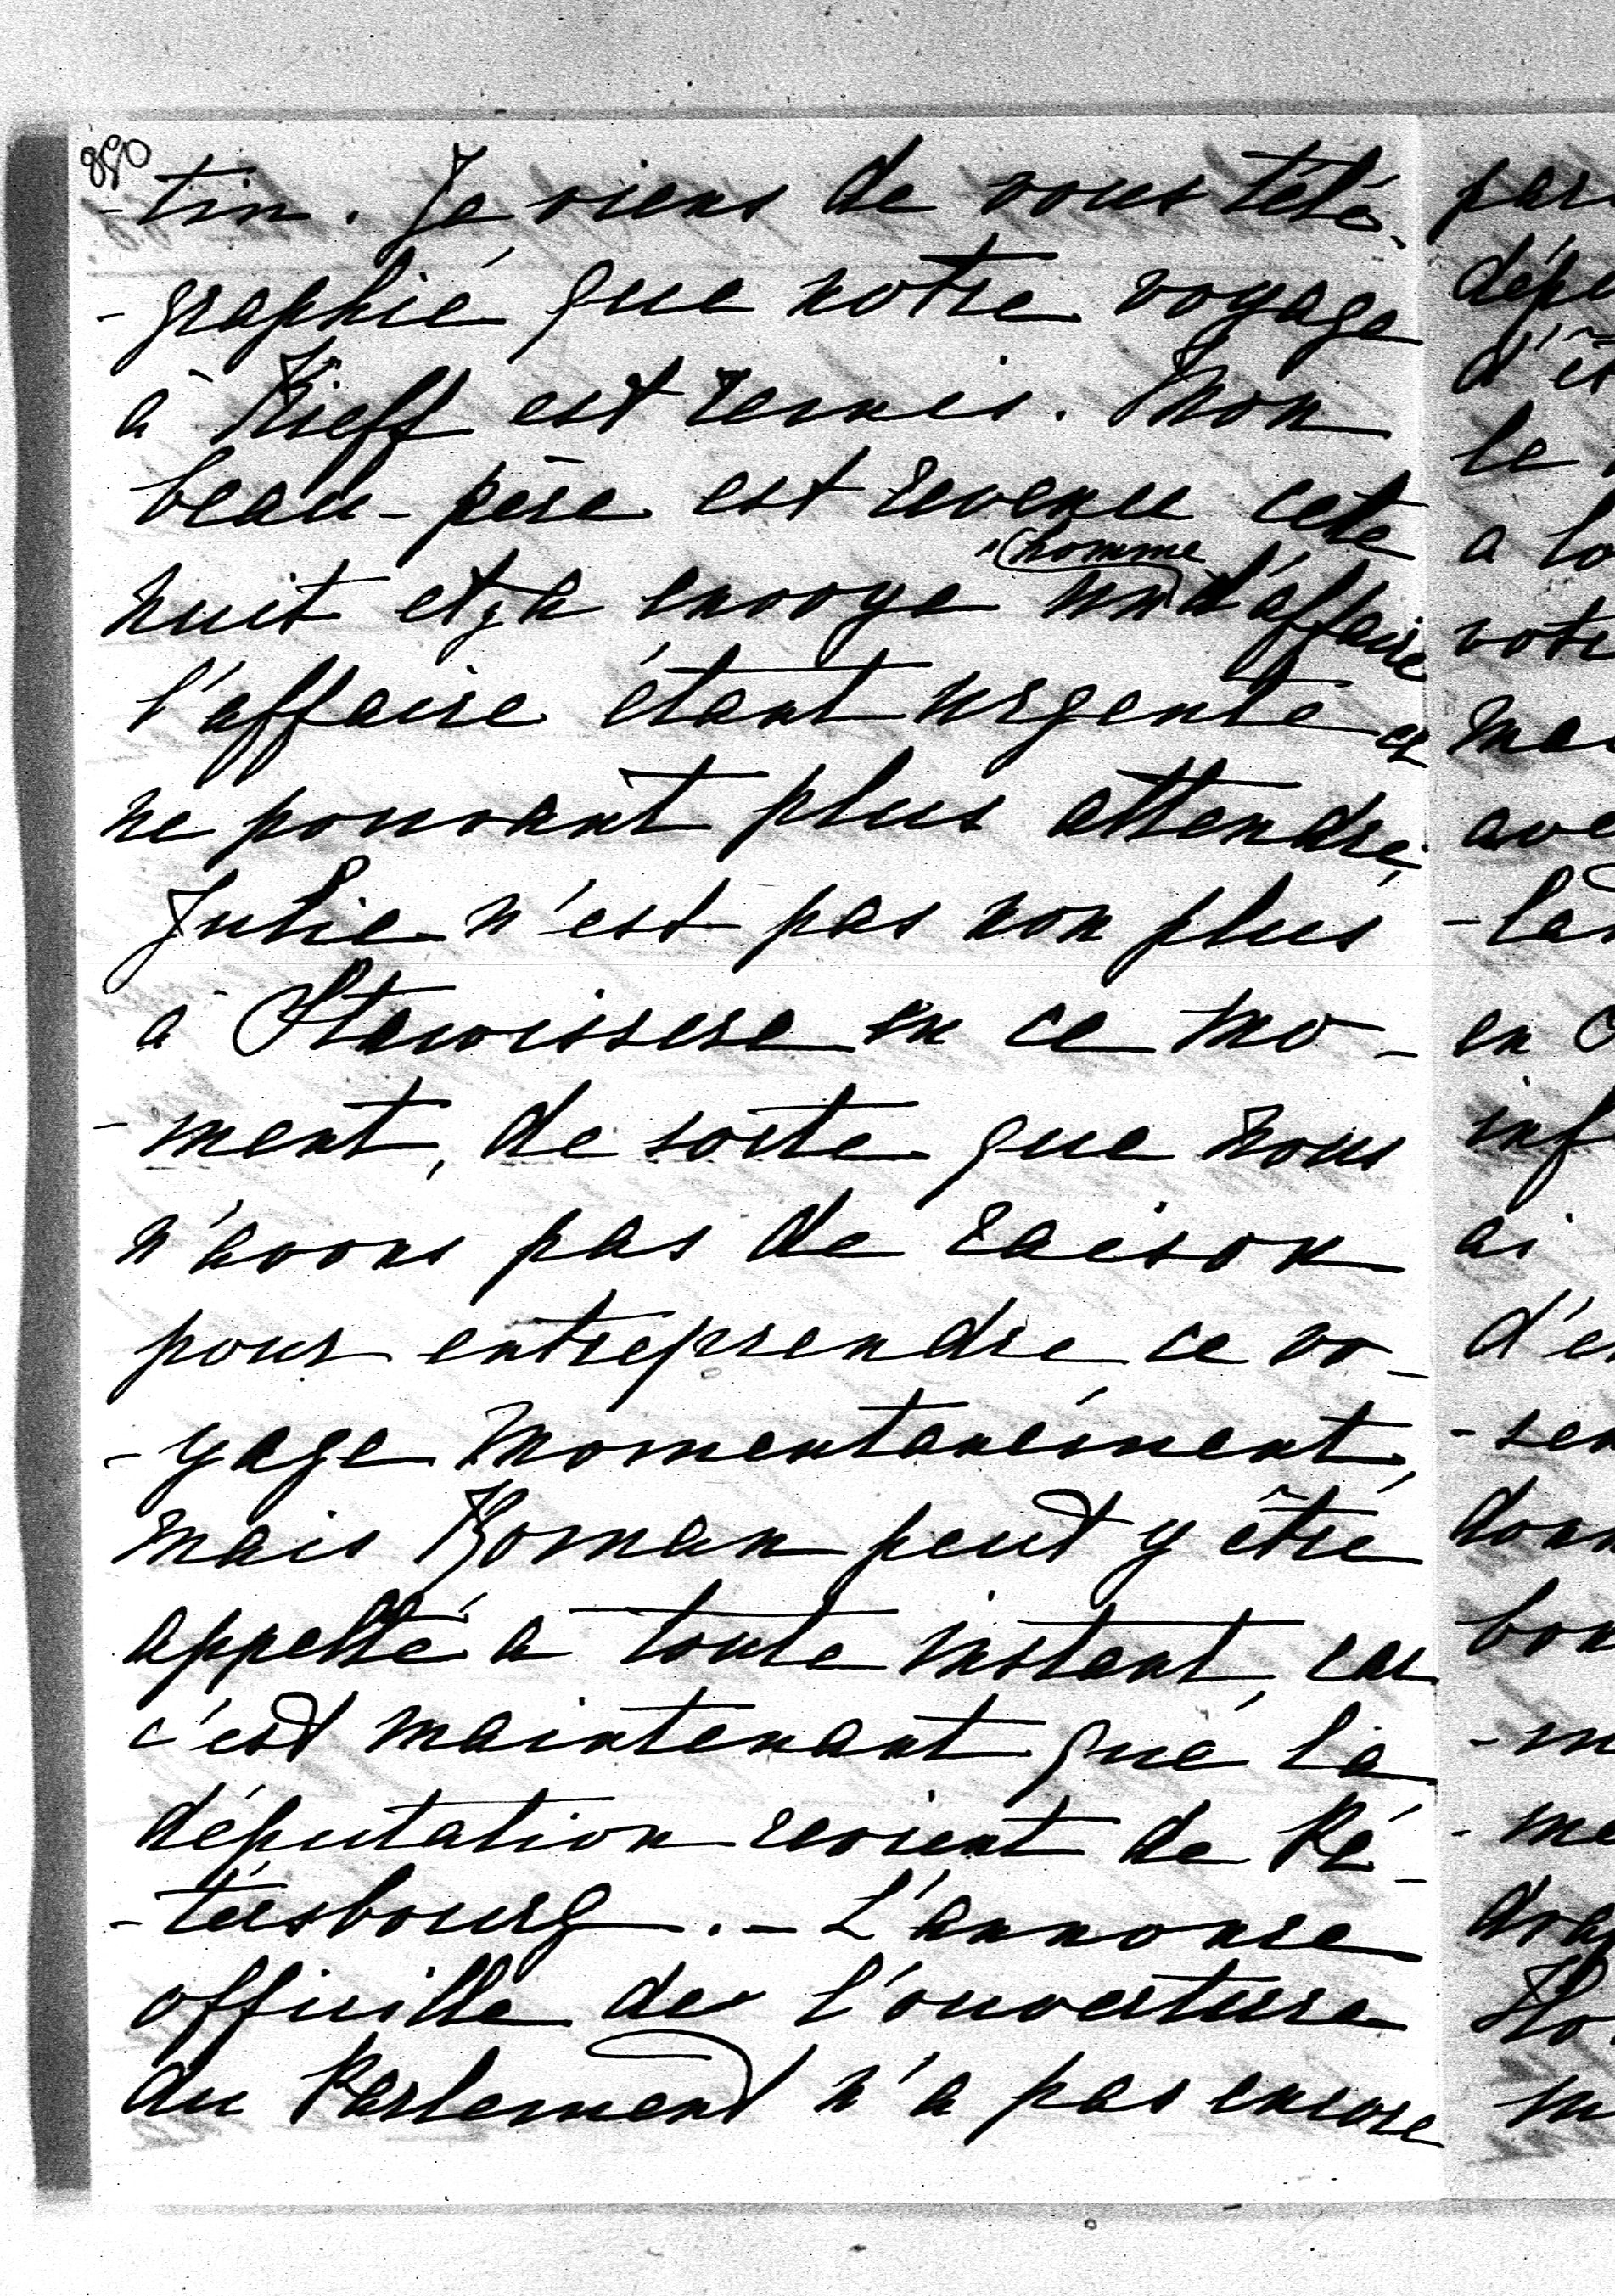 850
-tin. Je viens de vous télé-
-graphié que notre voyage
à Kieff est remis. Mon
beau-père est revenu cete
nuit et, a envoye un homme d'affaire
l'affaire étant urgente et
ne pouvant plus attendre,
Julie n'est pas non plus
à Stawissere en ce mo-
-ment, de sorte que nous
n'avons pas de raison
pour entreprendre ce vo-
-yage momentanément,
mais Roman peut y être
appellé a toute instant, car
c'est maintenant que la
députation revient de Pé-
-tersbourg. - L'annonce
officielle de l'ouverture
du Parlement n'a pas encore
par
d'êt
le
a
votr
mai
ave
-lan
en
inf
ai
d'en
-sen
donn
bon
-m
-me